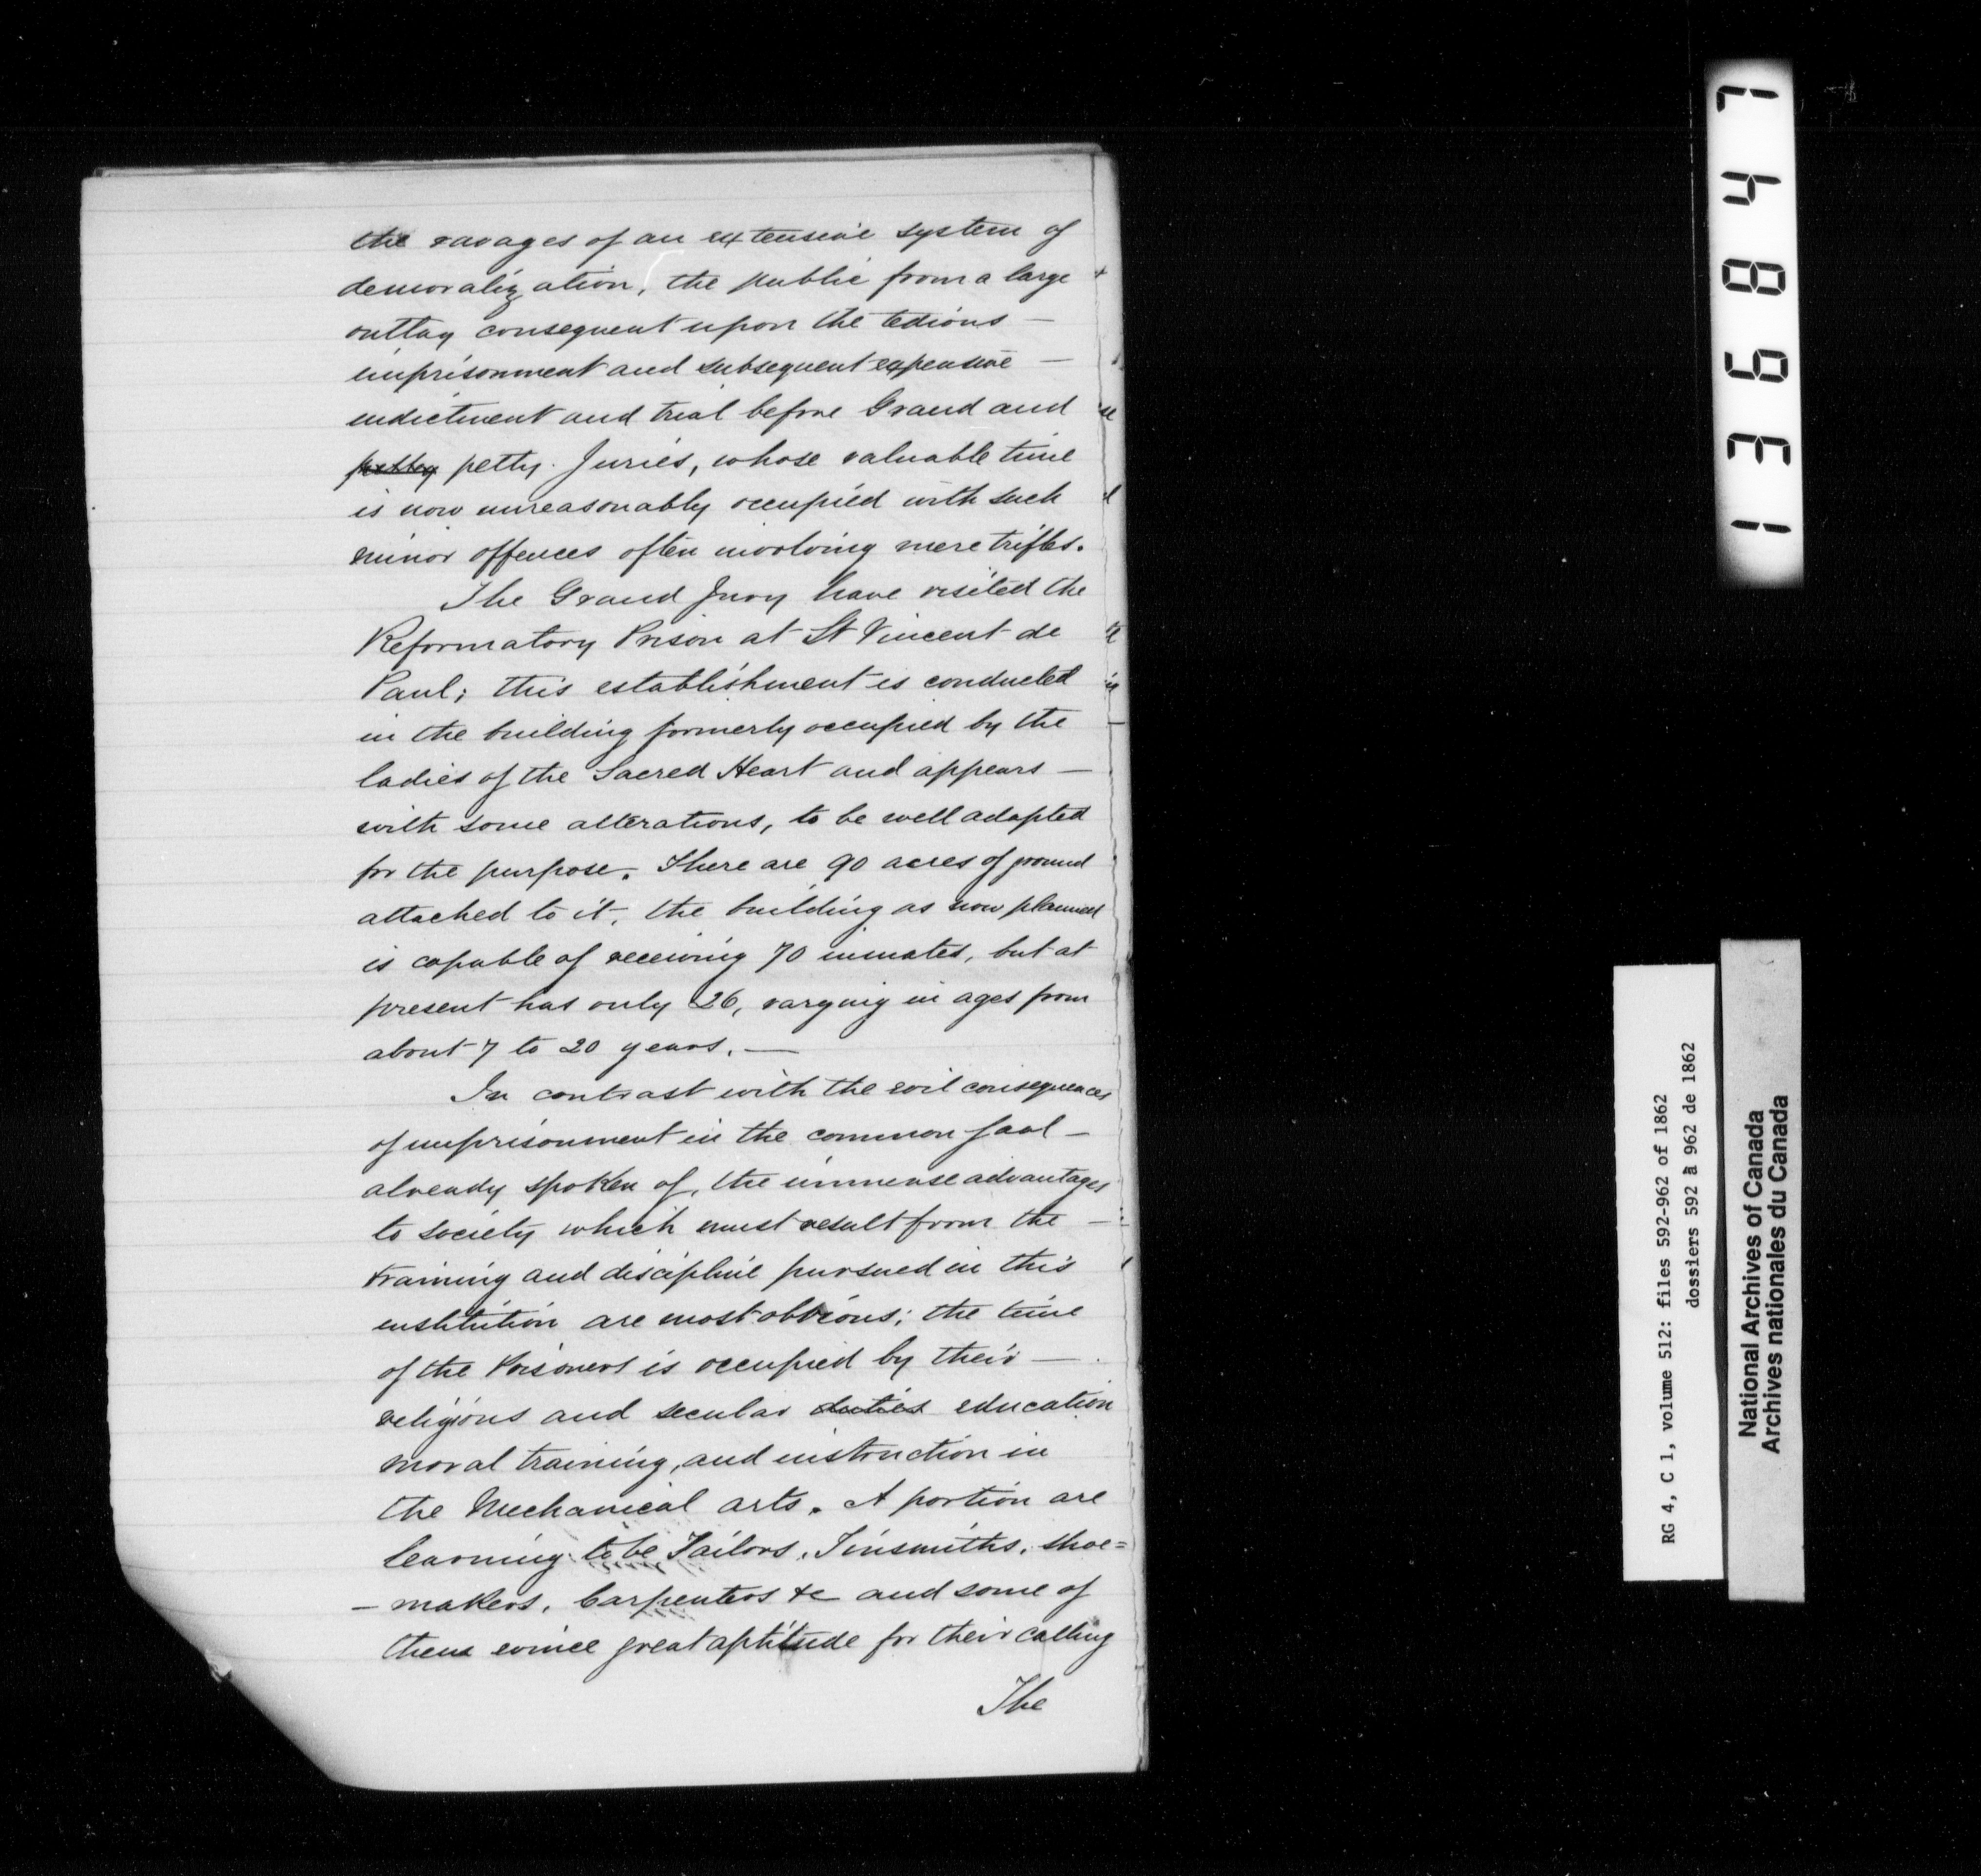 the ravages of an extensive system of
demoralization, the public from a large
outlay consequent upon the tedious —
imprisonment and subsequent expensive —
indictment and trial before Grand and
petty petty Juries, whose valuable time
is now unreasonably occupied with such
minor offences often involving mere trifles.
The Grand Jury have visited the
Reformatory Prison at St Vincent de
Paul; this establishment is conducted
in the building formerly occupied by the
ladies of the Sacred Heart and appears —
with some alterations, to be well adapted
for the purpose. There are 90 acres of ground
attached to it, the building as now planned
is capable of receiving 70 inmates, but at
present has only 26, varying in ages from
about 7 to 20 years. —
In contrast with the evil consequences
of imprisonment in the common Gaol —
already spoken of, the immense advantages
to society which must result from the —
training and discipline pursued in this
institution are most obvious; the time
of the Prisoners is occupied by their —
religious and secular duties education
moral training, and instruction in
the Mechanical arts. A portion are
learning to be Tailors, Tinsmiths, shoe=
— makers, Carpenters &c and some of
them evince great aptitude for their calling
The
136847
RG 4, C 1, volume 512: files 592-962 of 1862
dossiers 592 à 962 de 1862
National Archives of Canada
Archives nationales du Canada